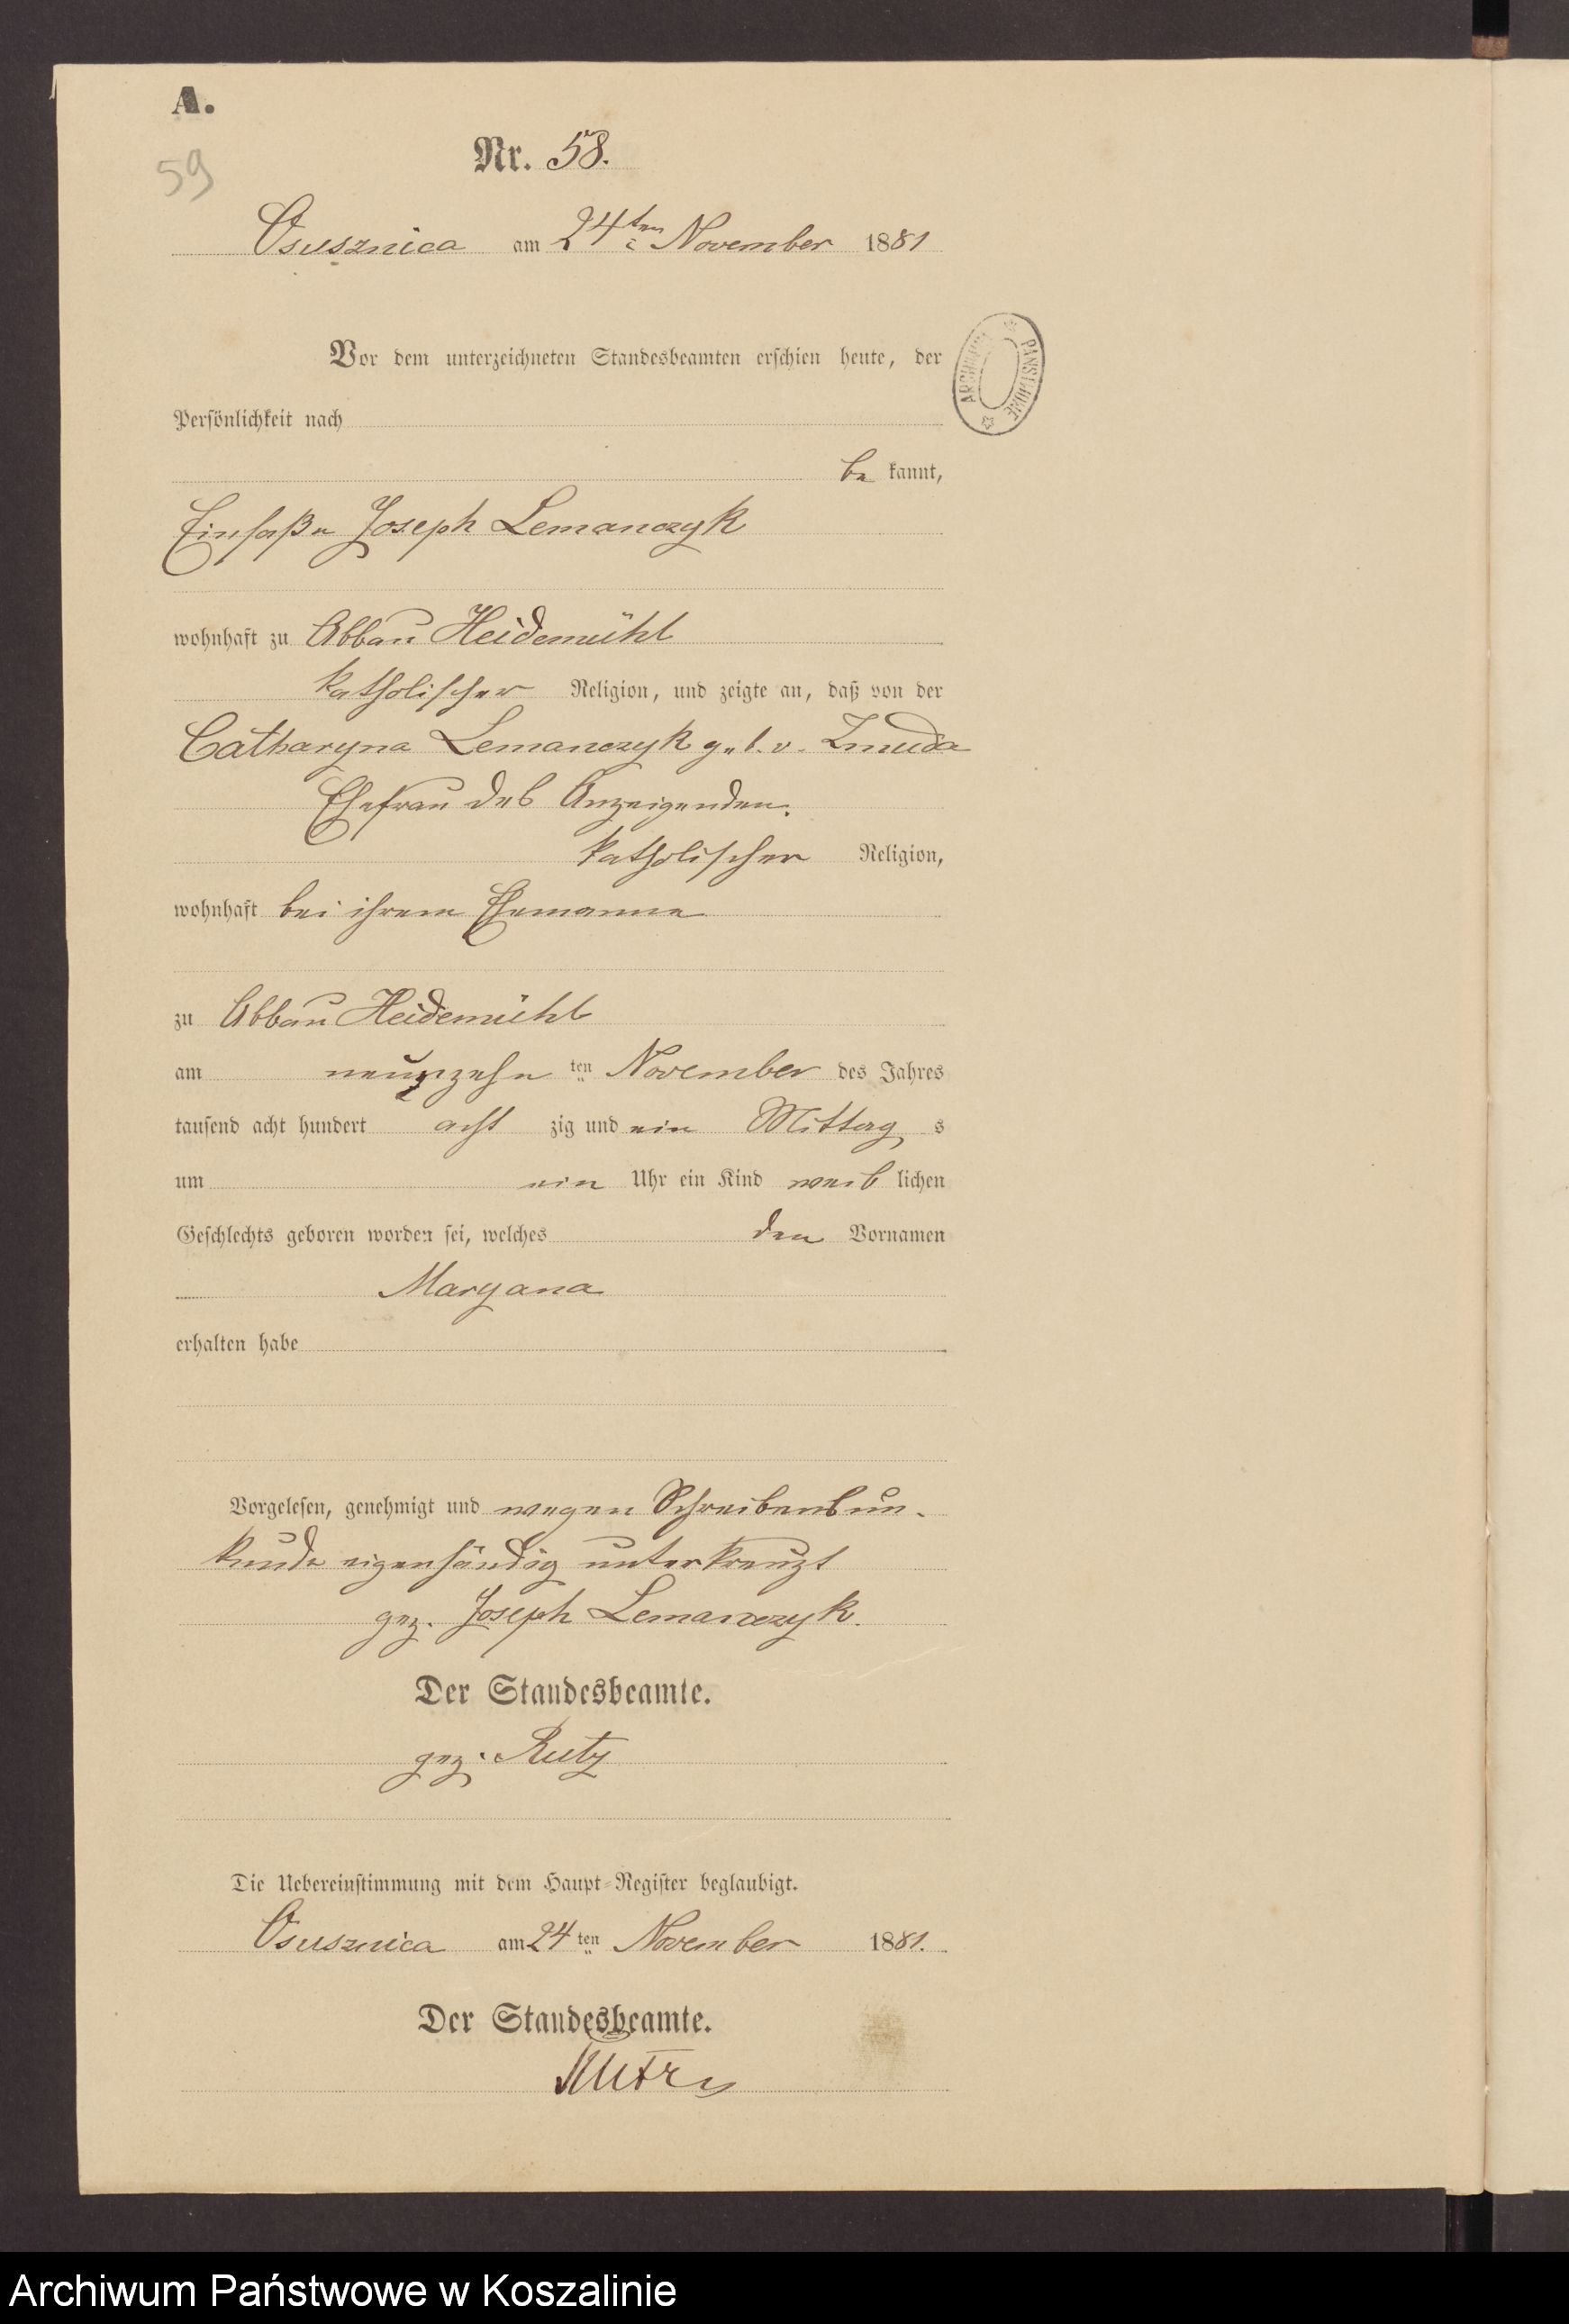 A.
59
Nr. 58.
Osusznica am 24ten November 1881
Vor dem unterzeichneten Standesbeamten erschien heute, der
Persönlichkeit nach
be kannt,
Einsaße Joseph Lemanczyk
wohnhaft zu Abbau Heidemühl
katholischer Religion, und zeigte an, daß von der
Catharyna Lemanczyk geb. v. Zmuda
Ehefrau des Anzeigenden.
katholischer Religion,
wohnhaft bei ihrem Ehemanne
zu Abbau Heidemühl
am neunzehn ten November des Jahres
tausend acht hundert acht zig und ein Mittag s
um ein Uhr ein Kind weib lichen
Geschlechts geboren worden sei, welches den Vornamen
Maryana
erhalten habe
Vorgelesen, genehmigt und wegen Schreibensun-
kunde eigenhändig unterkreuzt
gez. Joseph Lemanczyk.
Der Standesbeamte.
gez. Rutz
Die Uebereinstimmung mit dem Haupt-Register beglaubigt.
Osusznica am 24 ten November 1881.
Der Standesbeamte.
Rutz
ARCHIWUM PAŃSTWOWE
Archiwum Państwowe w Koszalinie